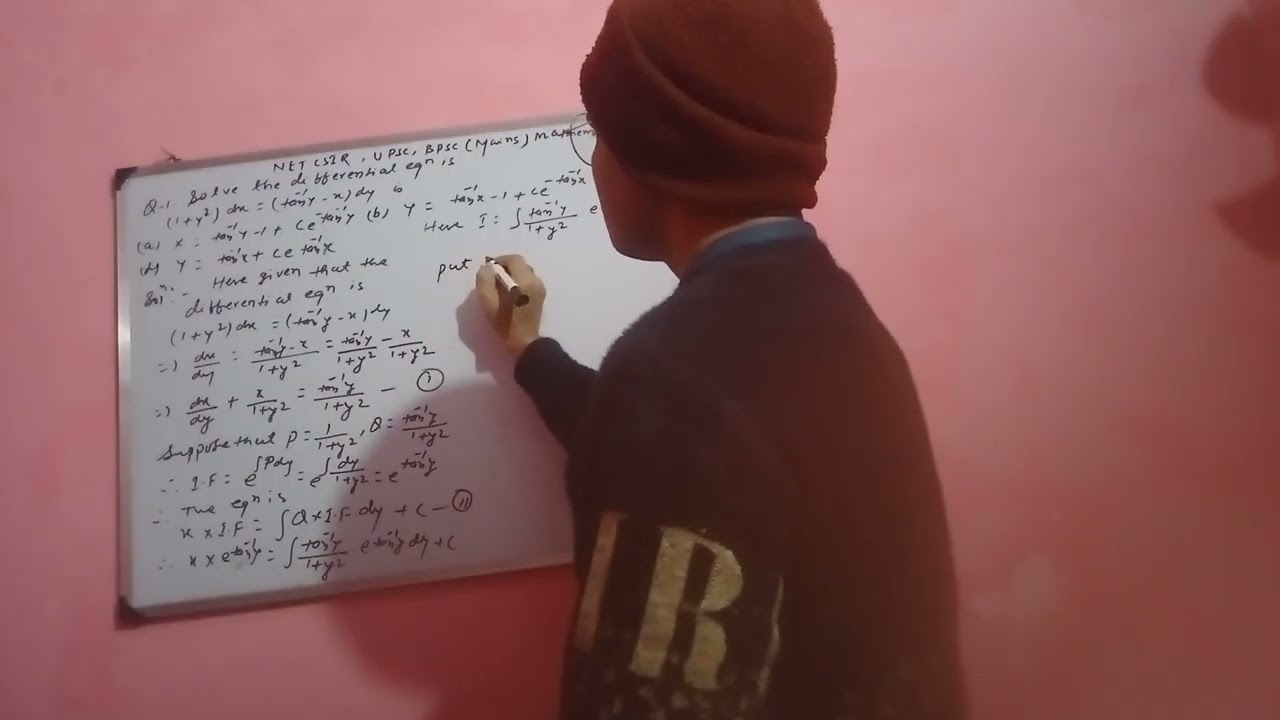 NET CSIR, UPSC, BPSC (Mains) Mathem
Q-1. Solve the differential eqⁿ is
(1+y²) dx = (tan⁻¹y - x) dy is
(a) x = tan⁻¹y - 1 + Ce^-tan⁻¹y (b) y = tan⁻¹x - 1 + Ce^-tan⁻¹x
y = tan⁻¹x + Ce^tan⁻¹x
Solⁿ:- Here given that the
differential eqⁿ is
(1+y²) dx = (tan⁻¹y - x) dy
=) dx/dy = (tan⁻¹y - x)/(1+y²) = tan⁻¹y/(1+y²) - x/(1+y²)
=) dx/dy + x/(1+y²) = tan⁻¹y/(1+y²) - (i)
Suppose that P = 1/(1+y²), Q = tan⁻¹y/(1+y²)
∴ I.F = e^∫Pdy = e^∫dy/(1+y²) = e^tan⁻¹y
∴ The eqⁿ is
x × I.F = ∫Q × I.F dy + C - (ii)
∴ x × e^tan⁻¹y = ∫ tan⁻¹y/(1+y²) e^tan⁻¹y dy + C
Here I = ∫ tan⁻¹y/(1+y²) e
put
R